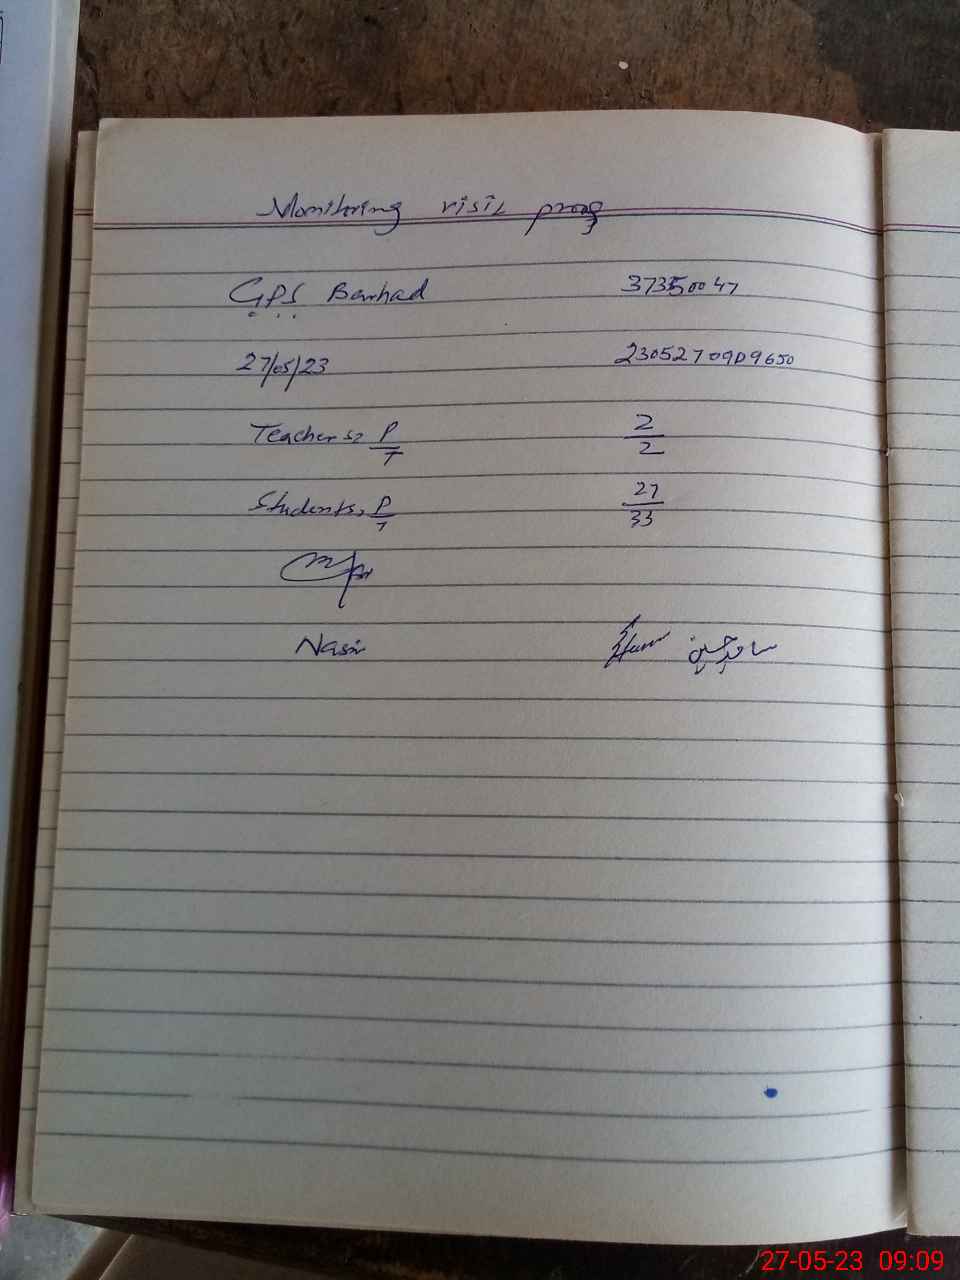 Monitoring visit proof
GPS Banhad 37350047
27/05/23 23052709D9650
Teachers: P/T 2/2
Students, P/T 27/33
Nasir
27-05-23 09:09